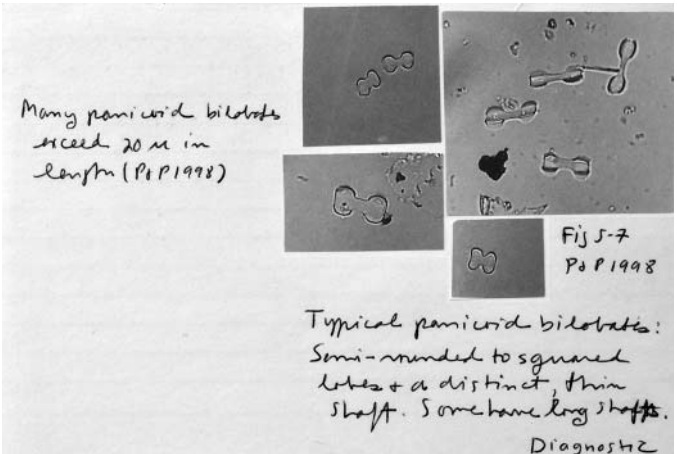 Many panicoid bilobates
exceed 20 µ in
length (P&P 1998)
Fig 5-7
P&P 1998
Typical panicoid bilobates:
Semi-rounded to squared
lobes & a distinct, thin
shaft. Some have long shafts.
Diagnostic